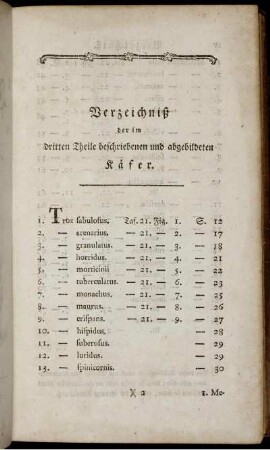 Verzeichniß
der im
dritten Theile beschriebenen und abgebildeten
Käfer.
1. Trox sabulosus. Taf. 21. Fig. 1. S. 12
2. — arenarius. — 21. — 2. — 17
3. — granulatus. — 21. — 3. — 18
4. — horridus. — 21. — 4. — 21
5. — morticinii — 21. — 5. — 22
6. — tuberculatus. — 21. — 6. — 23
7. — monachus. — 21. — 7. — 25
8. — maurus. — 21. — 8. — 26
9. — crispans. — 21. — 9. — 27
10. — hispidus. — — — — 28
11. — suberosus. — — — — 29
12. — luridus. — — — — 29
13. — spinicornis. — — — — 30
X 2 1. Me-